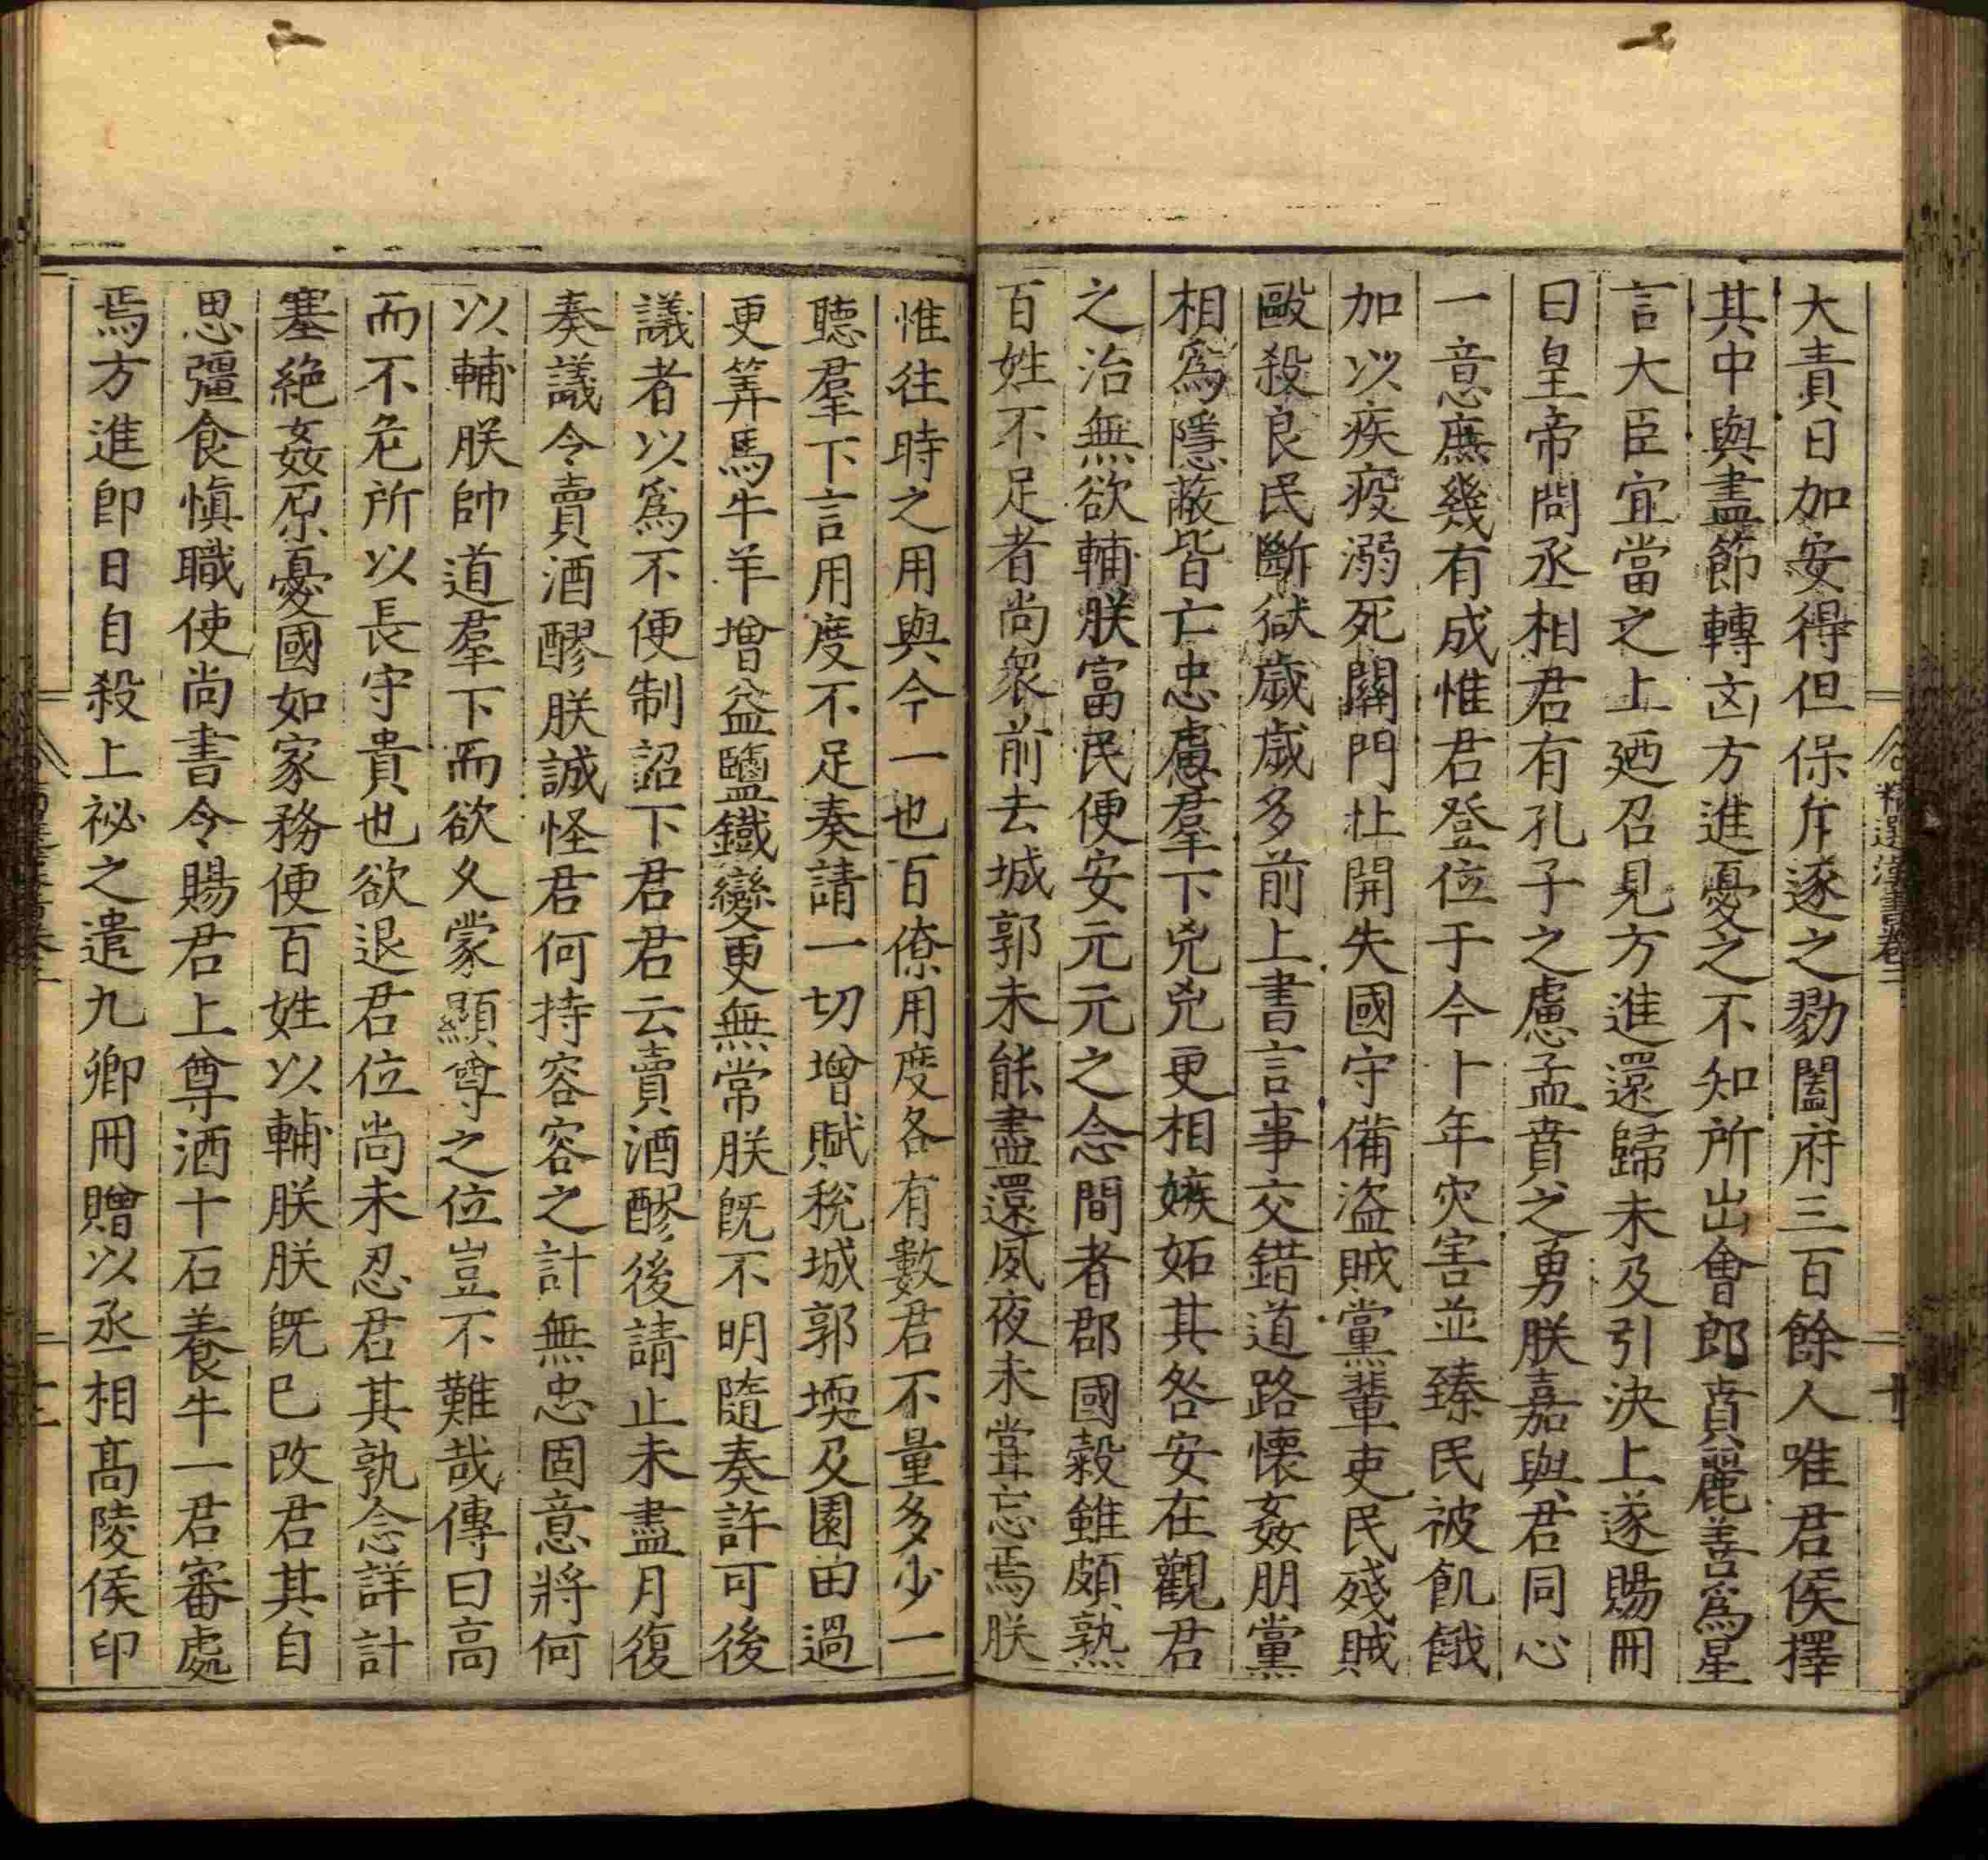 大責日加安得但保斥逐之勠闔府三百餘人唯君侯擇
其中與盡節轉㐫方進憂之不知所出會郎賁麗善爲星
言大臣宜當之上廼召見方進還歸未及引決上遂賜冊
曰皇帝問丞相君有孔子之慮孟賁之勇朕嘉與君同心
一意庶幾有成惟君登位于今十年灾害並臻民被飢餓
加以疾疫溺死關門牡開失國守備盜賊黨輩吏民殘賊
毆殺良民斷獄歲歲多前上書言事交錯道路懷姦朋黨
相爲隱蔽皆亡忠慮羣下兇兇更相嫉妬其咎安在觀君
之治無欲輔朕富民便安元元之念間者郡國穀雖頗熟
百姓不足者尚衆前去城郭未能盡還夙夜未甞忘焉朕
精選漢書卷二
十二
惟往時之用與今一也百僚用度各有數君不量多少一
聽羣下言用度不足奏請一切增賦稅城郭堧及園田過
更筭馬牛羊增益鹽鐵變更無常朕旣不明隨奏許可後
議者以爲不便制詔下君君云賣酒醪後請止未盡月復
奏議令賣酒醪朕誠怪君何持容容之計無忠固意將何
以輔朕帥道羣下而欲久蒙顯尊之位豈不難哉傳曰高
而不危所以長守貴也欲退君位尚未忍君其孰念詳計
塞絶姦原憂國如家務便百姓以輔朕朕旣已改君其自
思彊食愼職使尚書令賜君上尊酒十石養牛一君審處
焉方進卽日自殺上祕之遣九卿冊贈以丞相高陵侯印